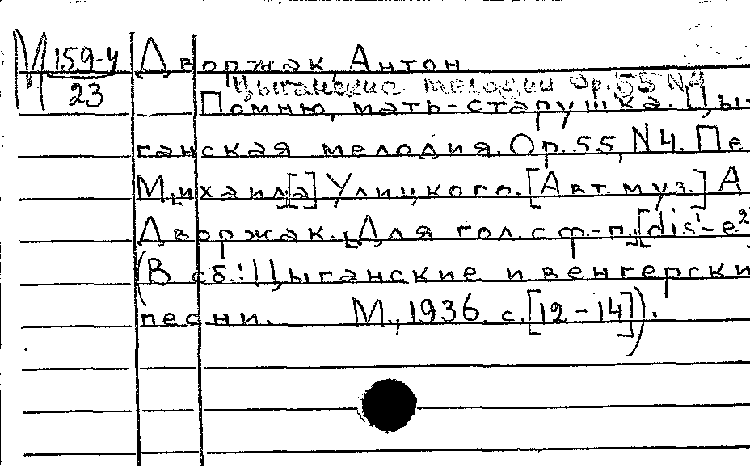 М 159-4 Дворжак, Антон
23 Цыганские мелодии Op. 55 N4
Помню, мать-старушка. Цы-
ганская мелодия. Op. 55, N4. Пе
М[ихаила] Улицкого. [Авт. муз.] А
Дворжак. Для гол. с ф-п. [dis¹-e²
(В сб.: Цыганские и венгерски
песни. М., 1936. с. [12-14]).